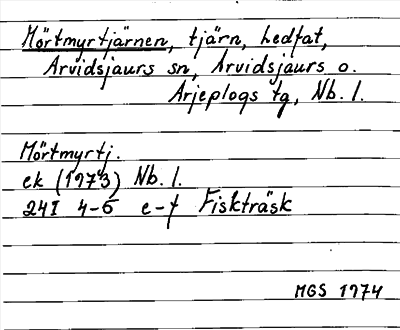 Mörtmyrtjärnen, tjärn, Ledfat,
Arvidsjaurs sn, Arvidsjaurs o.
Arjeplogs tg, Nb. l.
Mörtmyrtj.
ek (1973) Nb. l.
24I 4-5 e-f Fiskträsk
MGS 1974